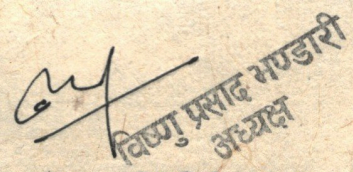 विष्णु प्रसाद भण्डारी
अध्यक्ष